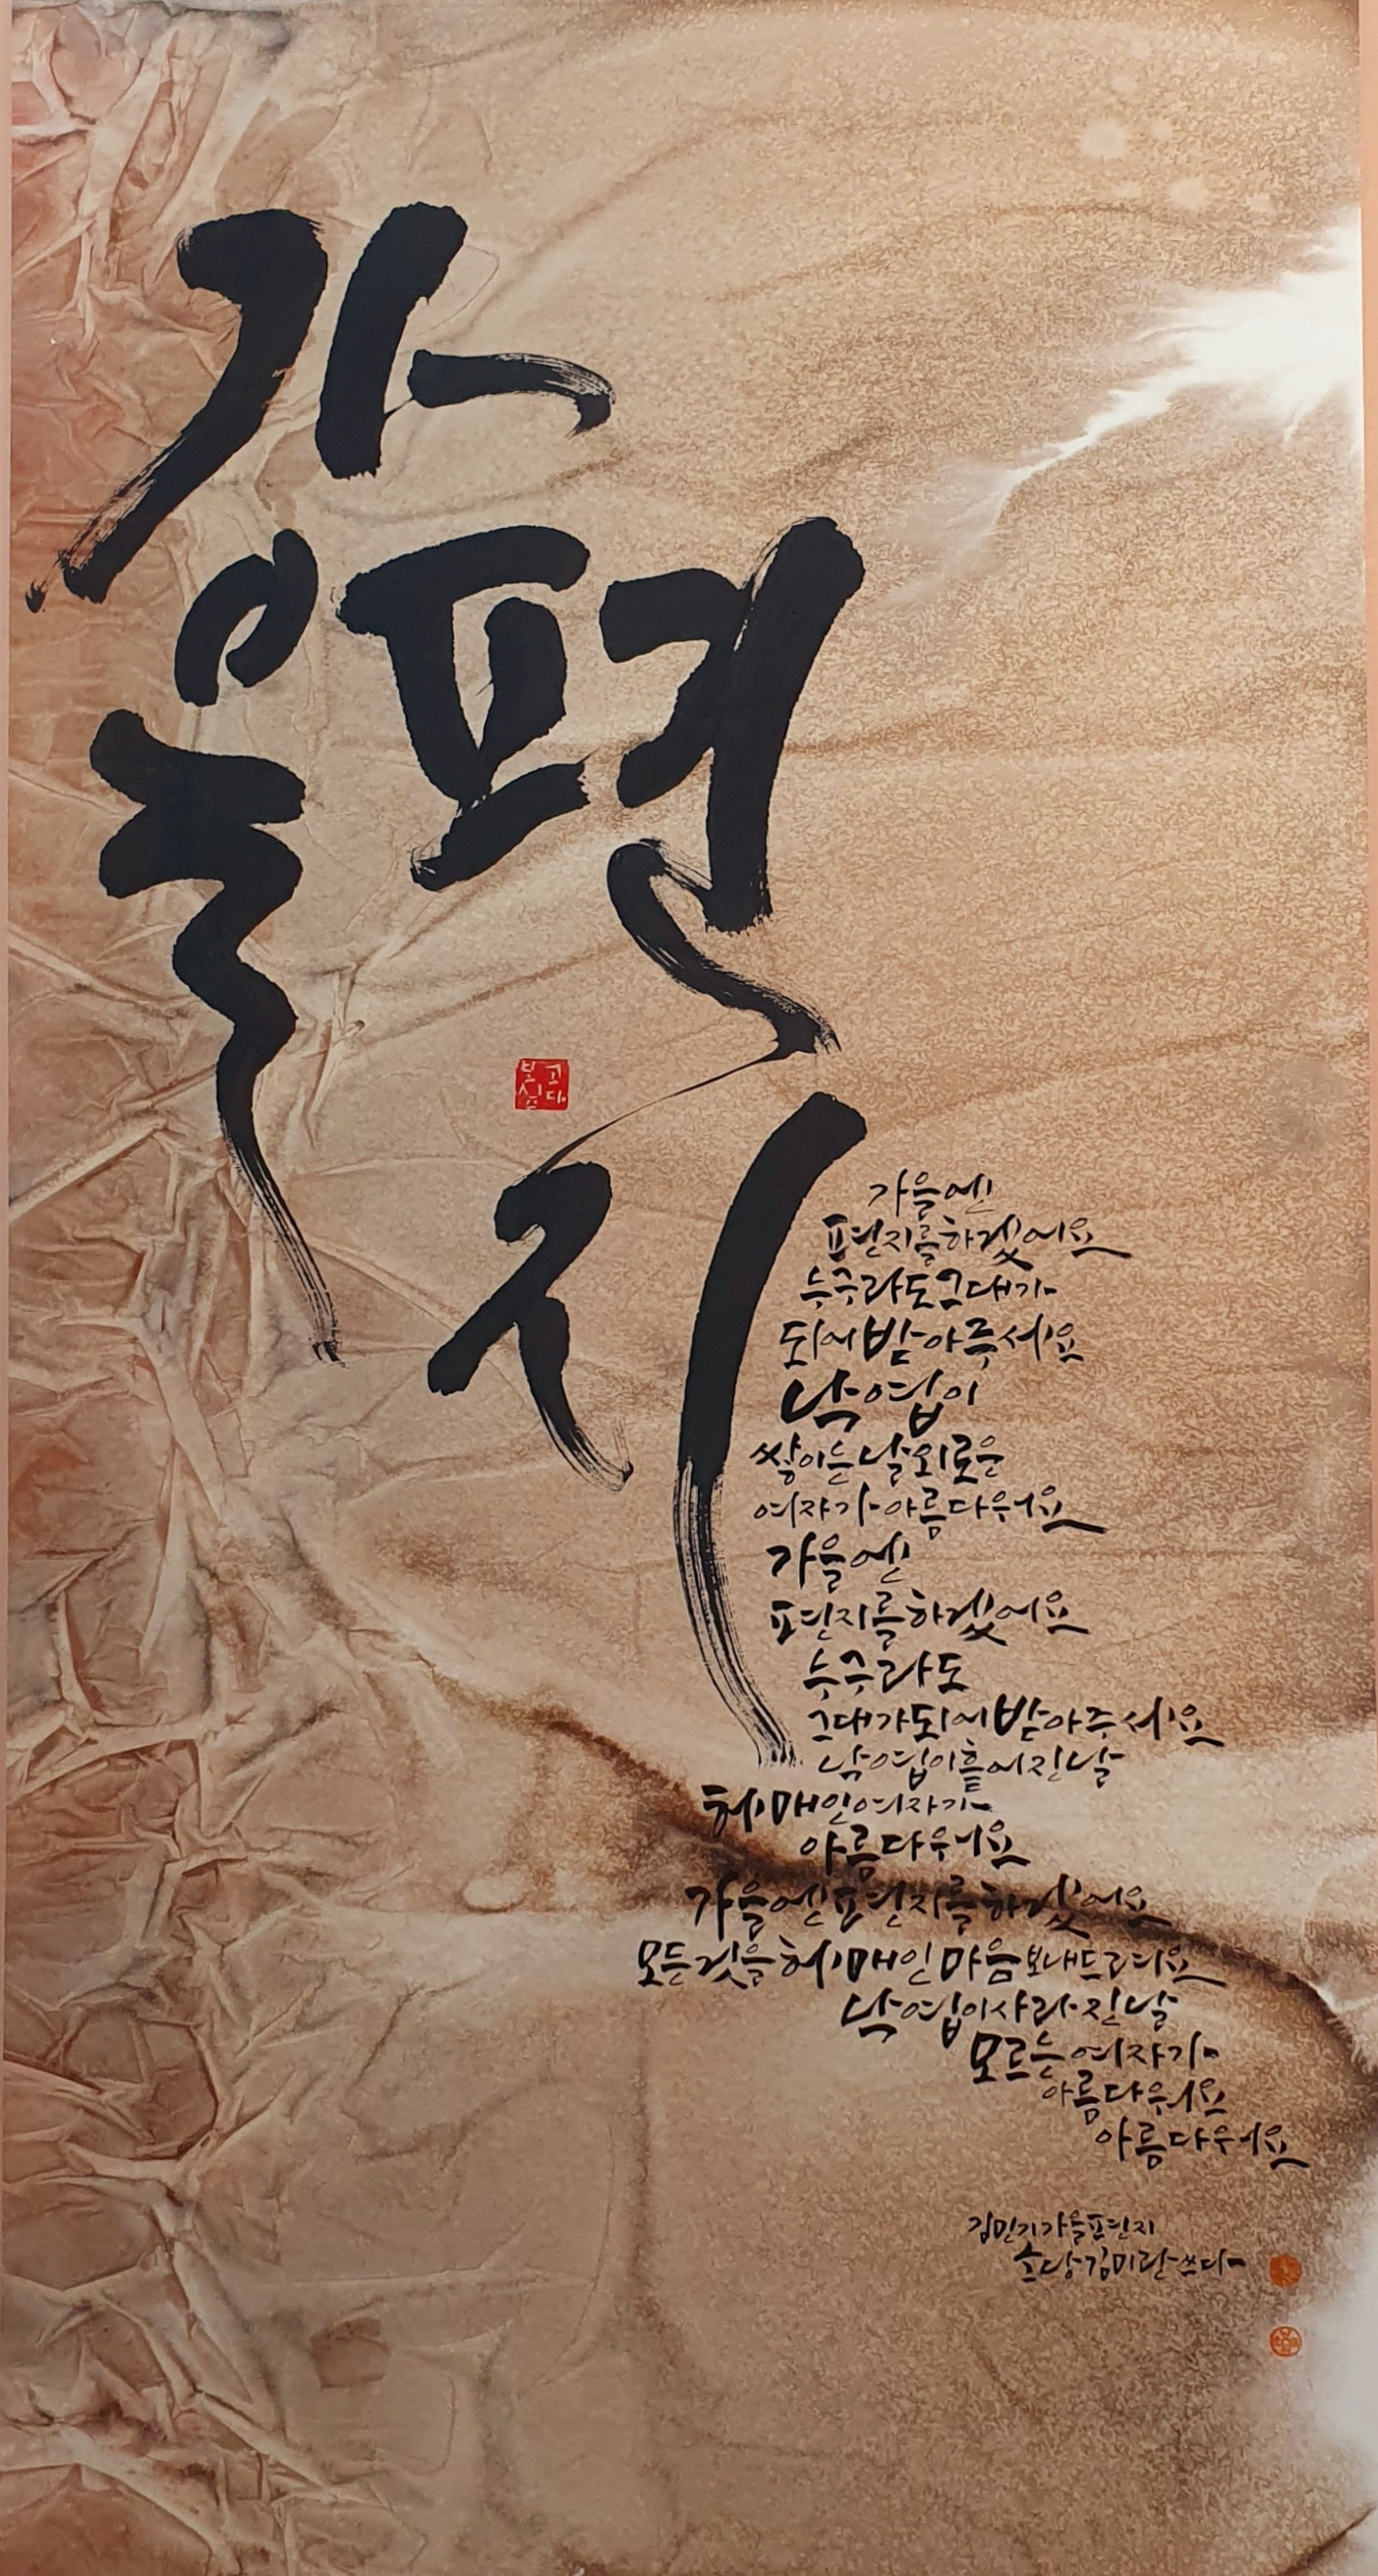 가을
편지
보고
싶다
가을엔
편지를 하겠어요
누구라도 그대가
되어 받아 주세요
낙엽이
쌓이는 날 외로운
여자가 아름다워요
가을엔
편지를 하겠어요
누구라도
그대가 되어 받아 주세요
낙엽이 흩어진 날
헤매인 여자가
아름다워요
가을엔 편지를 하겠어요
모든 것을 헤매인 마음 보내 드려요
낙엽이 사라진 날
모르는 여자가
아름다워요
아름다워요
김민기 가을편지
소당 김미란 쓰다